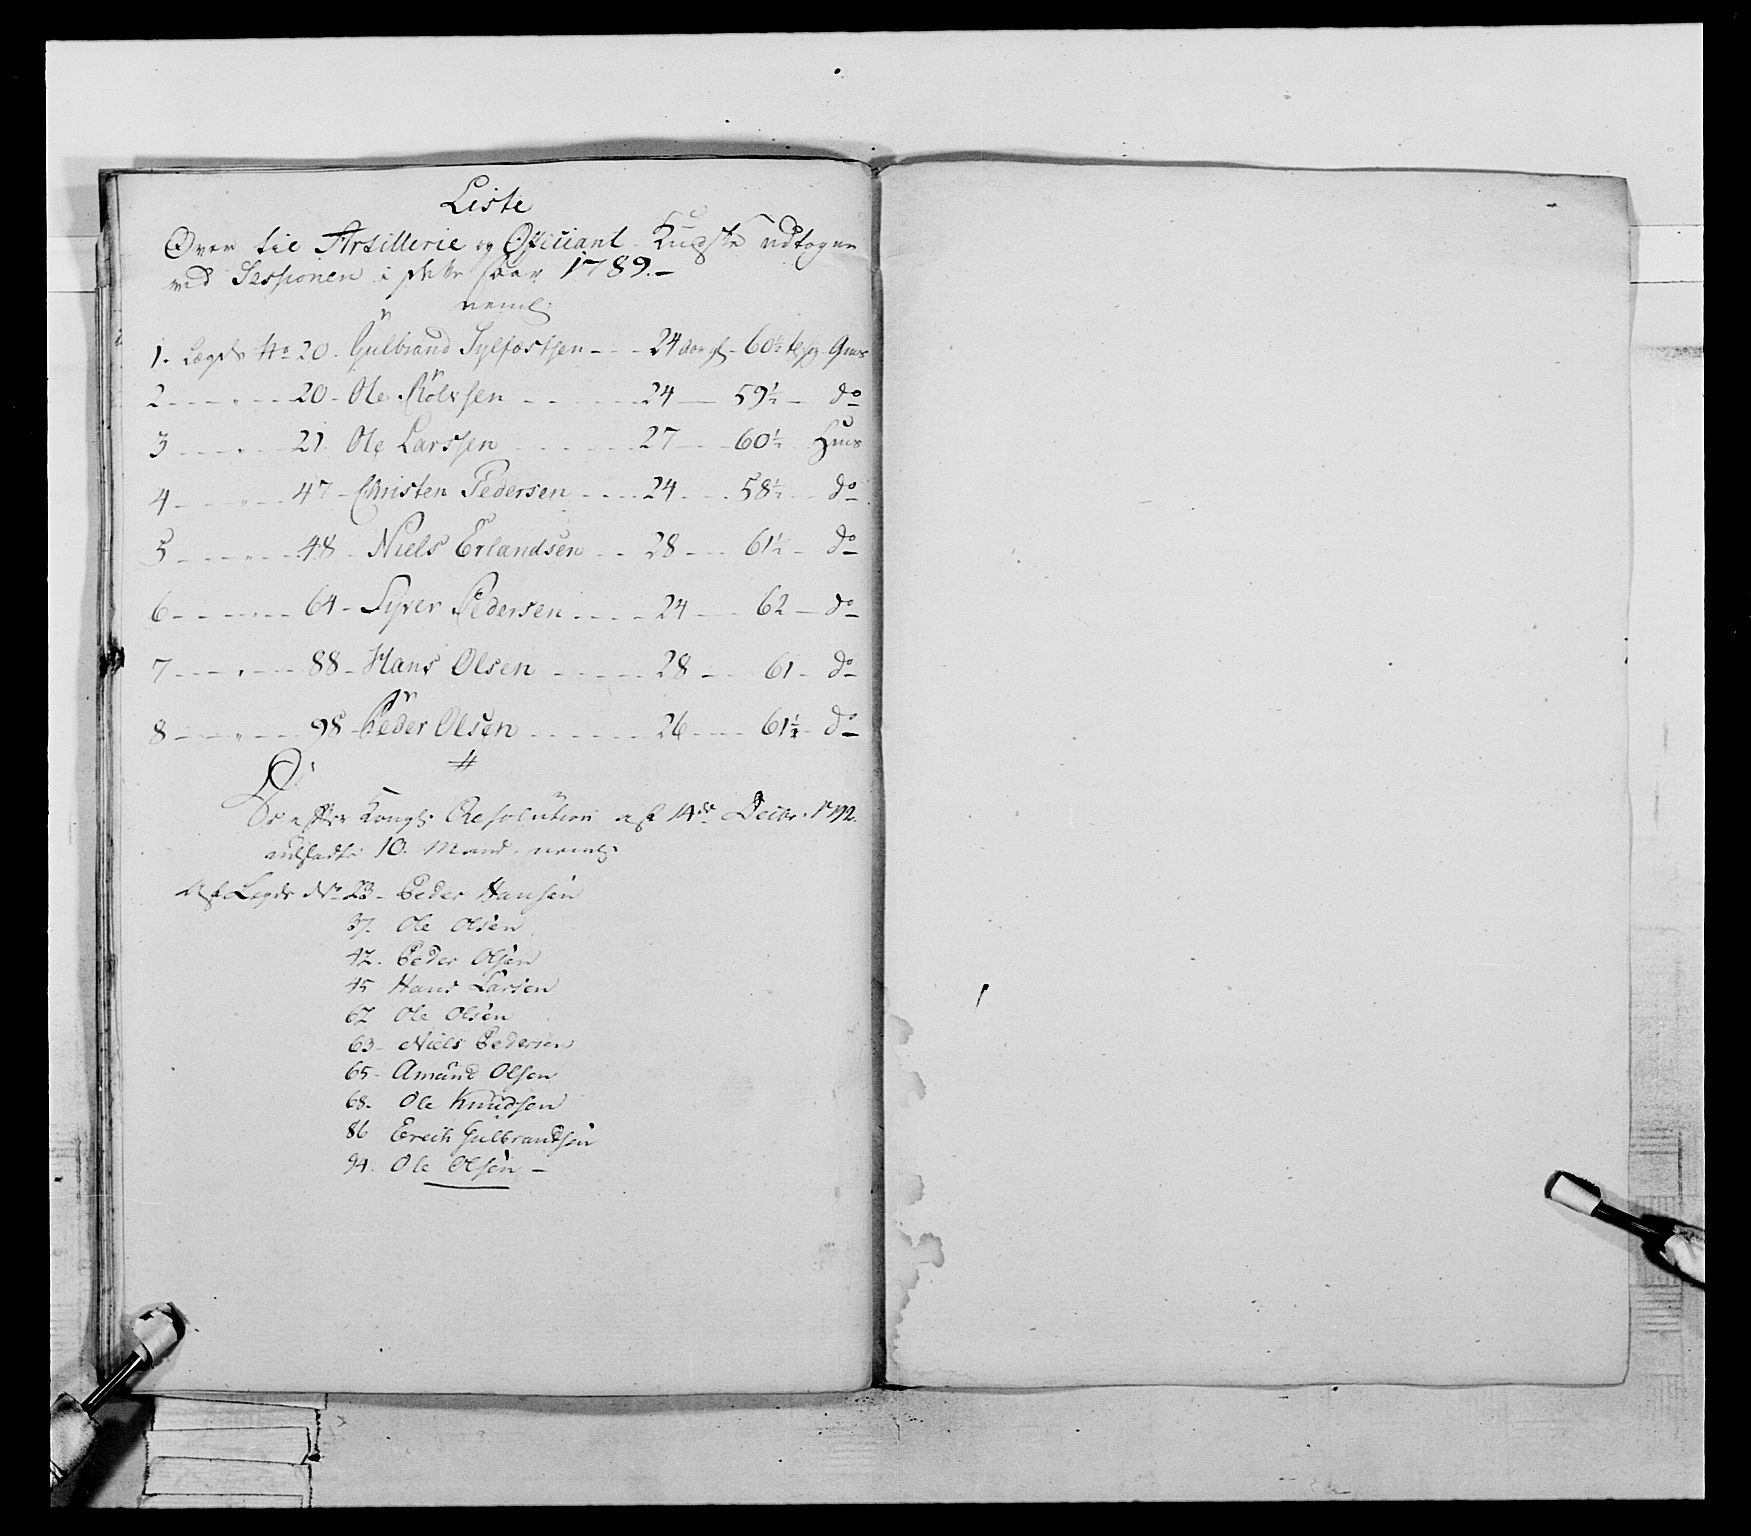 Liste
Over til Artillerie og Opsiciant Kudske udtagne
ved Sessionen i dette Aar 1789.-
neml:
1. Lægds No 20. Gulbrand Sylfæstsen - - - 24 aar gl - 60½ Gius
2 - - - " - - - 20 - Ole Rolvsen - - - - 24 - 59½ - do
3 - - - " - - - 21. Ole Larssen - - - - 27 - - 60½ - Huus
4 - - - " - - 47 - Christen Pedersen - - - - 24 - - - 58½ - - do
5 - - - " - - 48 - Niels Erlandsen - - 28 - - - 61½ - do
6 - - - - - - 64 - Syver Pedersen - - - - 24 - - - 62 - do
7 - - - " - - - 88 - Hans Olsen - - - - - 28 - - 61 - do
8 - - - " - - - 98 - Peder Olsen - - - - - - 26 - - - 61½ - do
efter Kongl. Resolution af 14de Decbr. 1792.
udsadte 10. Mand. neml.
Af Legds No 23 - Peder Hansen
37. Ole Olsen
42. Peder Olsen
45 Hans Larsen
62 Ole Olsen
63 - Niels Pedersen
65 - Amund Olsen
68. Ole Knudsen
86 Erich Gulbrandsen
94. Ole Olsen -